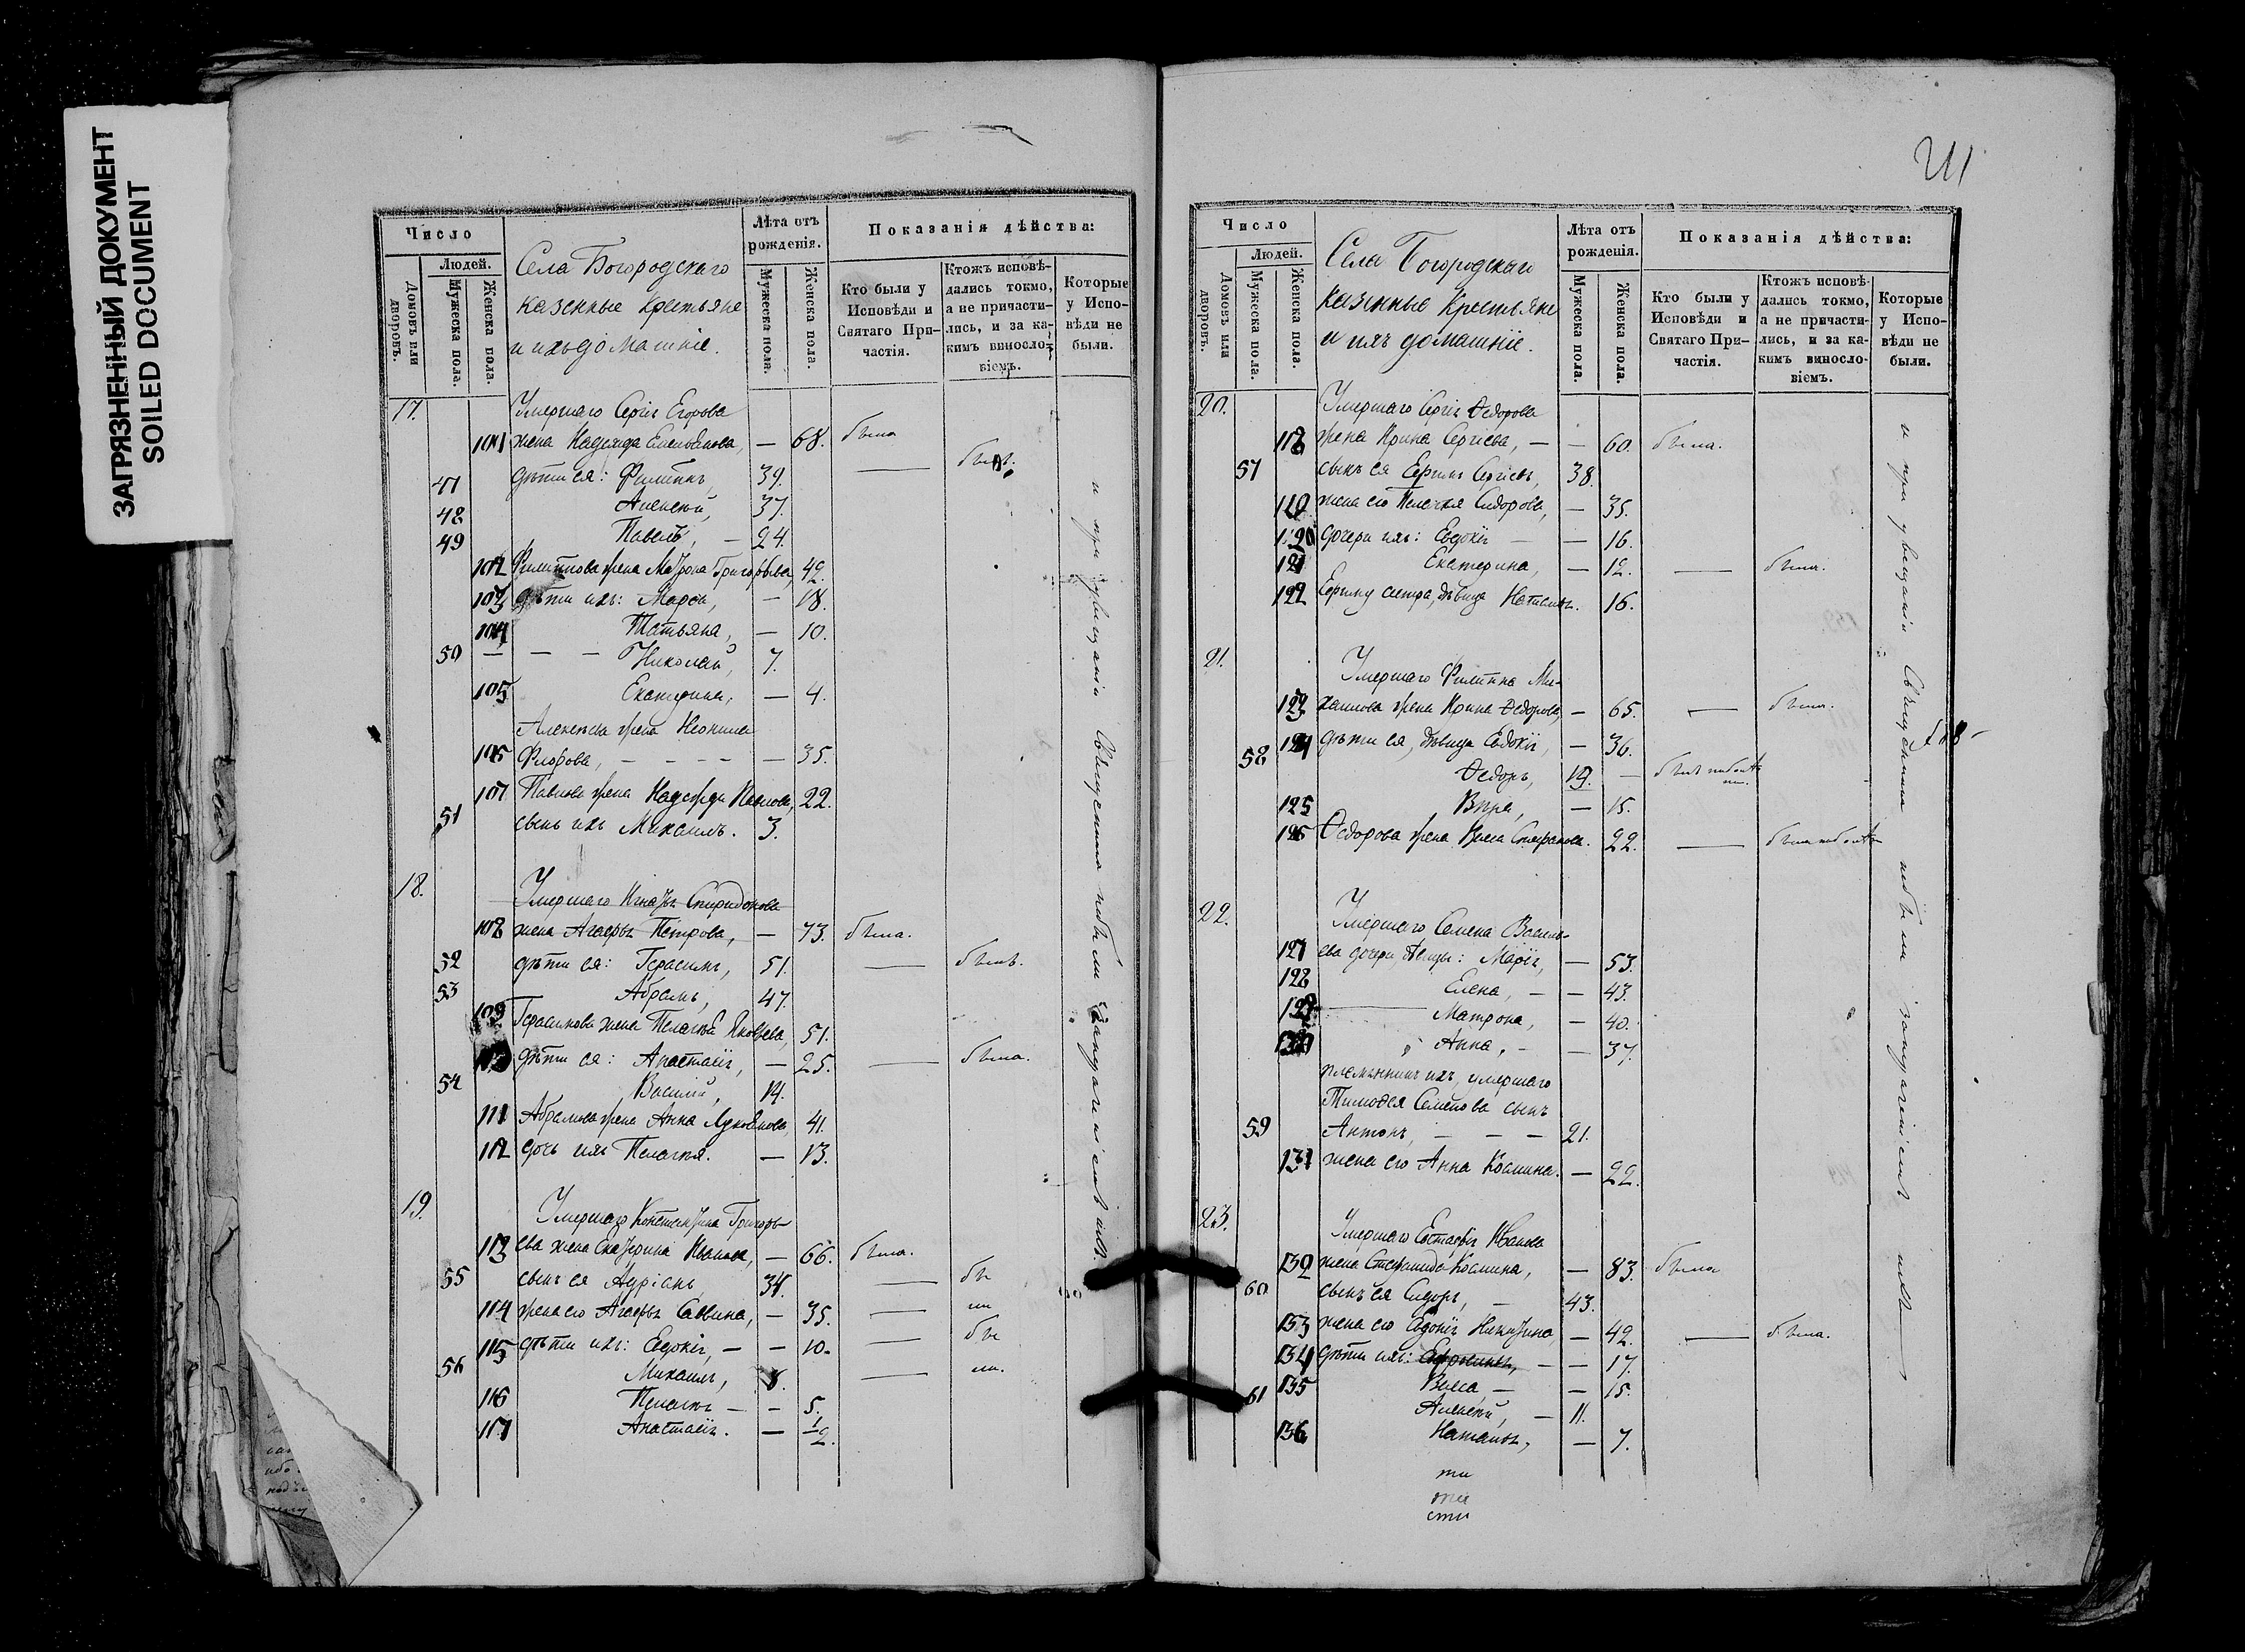 ЗАГРЯЗНЕННЫЙ ДОКУМЕНТ
SOILED DOCUMENT
Число
Людей.
Домовъ или дворовъ.
Мужеска пола.
Женска пола.
Села Богородскаго
казенные крестьяне
и ихъ домашніе.
Лѣта отъ рожденія.
Мужеска пола.
Женска пола.
Показанія дѣйства:
Кто были у Исповѣди и Святаго Причастія.
Ктожъ исповѣдались токмо, а не причастились, и за какимъ винословіемъ.
Которые у Исповѣди не были.
17. Умершаго Сергія Егорова
101 жена Надежда Емельянова, — 68. была
47 дѣти ея: Филиппъ, 39. — былъ.
48 Алексѣй, 37.
49 Павелъ, — 24.
102 Филиппова жена Матрона Григорьева, 42.
103 дѣти ихъ: Марѳа, — 18.
104 Татьяна, — 10.
50 — — — Николай, 7.
105 Екатерина, — 4.
Алексѣева жена Неонила
106 Флорова, — — — — — 35.
107 Павлова жена Надежда Павлова, 22.
51 сынъ ихъ Михаилъ. 3.
18. Умершаго Игнатія Спиридонова
108 жена Агафья Петрова, — 73. была.
52 дѣти ея: Герасимъ, 51. — былъ.
53 Абрамъ, 47.
109 Герасимова жена Пелагія Яковлева, 51.
110 дѣти ея: Анастасія, — 25. — была.
54 Василій, 14.
111 Абрамова жена Анна Лукьянова, 41.
112 дочь ихъ Пелагія. — 13.
19. Умершаго Константина Григорь-
113 ева жена Екатерина Иванова, — 66. была.
55 сынъ ея Адріанъ, 34. — бы
114 жена его Агафья Саввина, — 35. — ли
115 дѣти ихъ: Евдокія, — — 10. — бы
56 Михаилъ, 8. — ли.
116 Пелагія — — 5.
117 Анастасія. — 1/2.
и при увѣщаніи Священника небыли
Число
Людей.
Домовъ или дворовъ.
Мужеска пола.
Женска пола.
Села Богородскаго
казенные крестьяне
и ихъ домашніе.
Лѣта отъ рожденія.
Мужеска пола.
Женска пола.
Показанія дѣйства:
Кто были у Исповѣди и Святаго Причастія.
Ктожъ исповѣдались токмо, а не причастились, и за какимъ винословіемъ.
Которые у Исповѣди не были.
20. Умершаго Сергія Ѳедорова
118 жена Ирина Сергіева, — — 60. была.
57 сынъ ея Ермилъ Сергіевъ, 38.
119 жена его Пелагія Сидорова, — 35.
120 дочери ихъ: Евдокія — — 16.
121 Екатерина, — 12. — была.
122 Ермилу сестра, дѣвица Наталья. 16.
21. Умершаго Филиппа Ми-
123 хаилова жена Ирина Ѳедорова, — 65. — была.
124 дѣти ея, дѣвица Евдокія, — 36.
58 Ѳедоръ, 19. —
125 Вѣра, — 15.
126 Ѳедорова жена Васса Стефанова. 22. —
22. Умершаго Семена Василь-
127 ева дочери, дѣвицы: Марія, — 53.
128 Елена, — — 43.
129 Матрона, — 40.
130 Анна, — — 37.
племянникъ ихъ, умершаго
Тимоѳея Семенова сынъ
59 Антонъ, — — — 21.
131 жена его Анна Космина. — 22.
23. Умершаго Евстафія Иванова
132 жена Степанида Космина, — 83. была
60 сынъ ея Сидоръ, — 43.
133 жена его Евдокія Никитина, — 42. — была.
134 дѣти ихъ: Ефросинья, — — 17.
135 Васса, — — 15.
61 Алексѣй, — 11.
136 Наталья, — 7.
ти
ти
сти
и при увѣщаніи Священника небыли